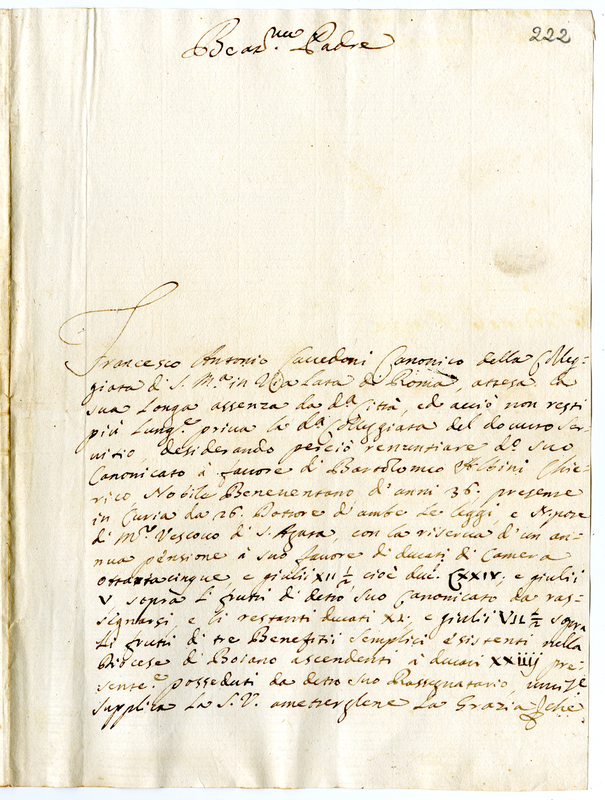 222
Beat.mo Padre
Francesco Antonio Cavedoni Canonico della Colleg-
giata di S. M.a in Via Lata di Roma, attesa la
sua longa assenza da d.a Città, ed acciò non resti
più lung.e priva la d.a Colleggiata del dovuto ser-
vitio, desiderando perciò renuntiare d.o suo
Canonicato à favore di Bartolomeo Albini Chie-
rico Nobile Beneventano d'anni 36. presente
in Curia da 26. Dottore di ambe le leggi, e Nipote
di M.r Vescovo di S. Agata, con la riserva d'un an-
nua pensione à suo favore di ducati di Camera
ottantacinque, e giulii XII ½ cioè duc. LXXIV, e giulii
V soprà li frutti di detto suo Canonicato da ras-
signarsi, e li restanti ducati XI, e giulii VII ½ sopra
li frutti di tre Benefitii semplici esistenti nella
Diocese di Boiano ascendenti à ducati XXiiij pre-
sente.e posseduti da detto suo Rassegnatario,
supplica la S.V. ametterglene la Grazia che